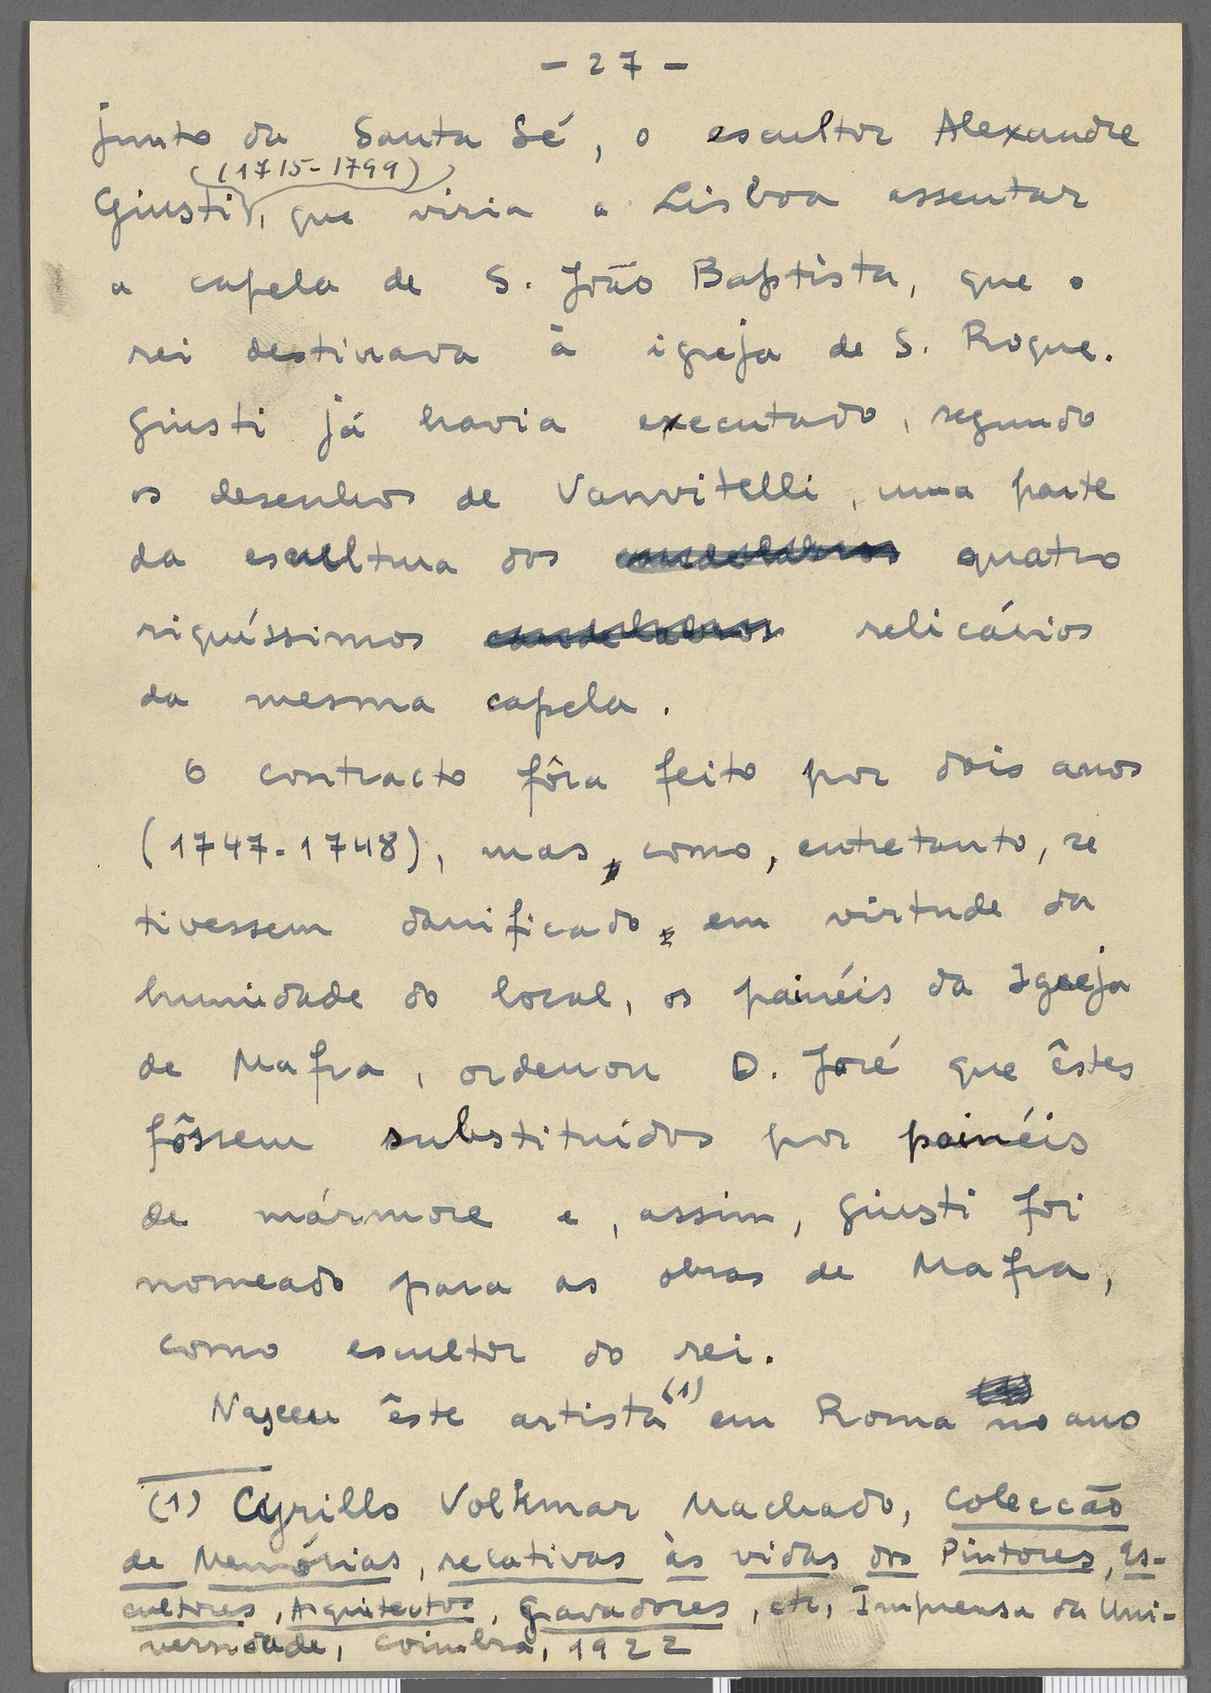 - 27 -
junto da Santa Sé, o escultor Alexandre
(1715-1799)
Giusti, que viria a Lisboa assentar
a capela de S. João Baptista, que o
rei destinava à igreja de S. Roque.
Giusti já havia executado, segundo
os desenhos de Vanvitelli, uma parte
da escultura dos candelabros quatro
riquíssimos candelabros relicários
da mesma capela.
O contracto fôra feito por dois anos
(1747-1748), mas, como, entretanto, se
tivessem danificado, em virtude da
humidade do local, os painéis da Igreja
de Mafra, ordenou D. José que êstes
fôssem substituídos por painéis
de mármore e, assim, Giusti foi
nomeado para as obras de Mafra,
como escultor do rei.
Nasceu êste artista (1) em Roma no ano
(1) Cyrillo Volkmar Machado, Colecção
de Memórias, relativas às vidas dos Pintores, Es-
cultores, Arquitectos, Gravadores, etc, Imprensa da Uni-
versidade, Coimbra, 1922